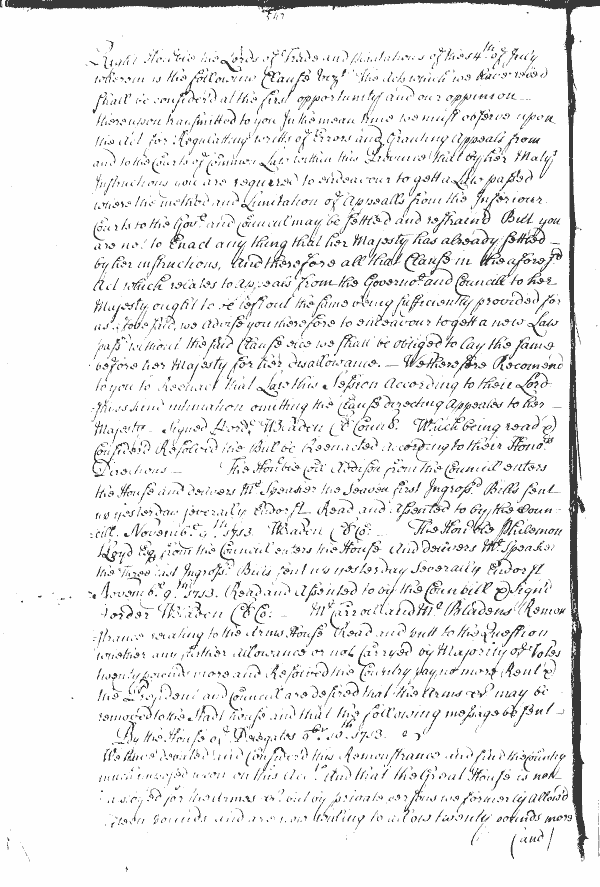 547
Right Honble the Lords of Trade and Plantations of the 14th of July
wherein is the following Clause vizt. The Acts which we have reced
shall be considerd at the first opportunity and our oppinion
thereupon transmitted to you In the mean time we must observe upon
the Act for Regulatting writts of Errors and Granting Appeals from
and to the Courts of Common Law within this Province That by her Matys
Instructions you are required to endeavour to gett a Law passed
where the method and Limitation of Appealls from the Inferiour
Courts to the Govr. and Councill may be settled and restraind But you
are not to Enact any thing that her Majesty has already settled
by her instructions, And therefore all that Clause in the aforesd
Act which relates to Appeals from the Governor and Councill to her
Majesty ought to be left out the same being sufficiently provided for
as aforesaid, we advise you therefore to endeavour to gett a new Law
past without the said Clause else we shall be obliged to lay the same
before her Majesty for her disallowance. We therefore Recomend
to you to Reenact that Law this Session According to their Lord
shipps kind intimation omitting the Clause directing Appeales to her
Majesty Signed W Bladen Cl Coun. Which being read &
Considerd Resolved the Bill be Reenacted according to their Honors
Directions The Honble Coll Addison from the Councill enters
the House and delivers Mr Speaker the seaven first Ingrossd. Bills sent
up yesterday severally Endorst Read and Assented to by the Coun-
cill. Novembr. 9th 1713. W Bladen Cl Co: The Honble Philemon
Lloyd Esq from the Councill enters the House And delivers Mr Speaker
the Three last Ingrossd. Bills sent up yesterday Severally Endorst
Novembr. 9th 1713. Read and Assented to by the Councill & Signd
p order W Bladen Cl Co: Mr Carroll and Mr Bladens Remon
strance relating to the Arms House Read and putt to the Question
whether any further Allowance or not Carryed by Majority of Votes
twenty pounds more and Resolved the Country pay no more Rent &
the President and Councill are desired that the Arms &c may be
removed to the Stadt house and that the following message be sent
By the House of Delegates 9br. 10th 1713.
We have debated and Considerd this Remonstrance and find the Country
much imposed upon on this Acct. And that the Great House is not
employed for the Armes &c. but by private persons we formerly Allowd
pounds and are now willing to allow twenty pounds more
(and)